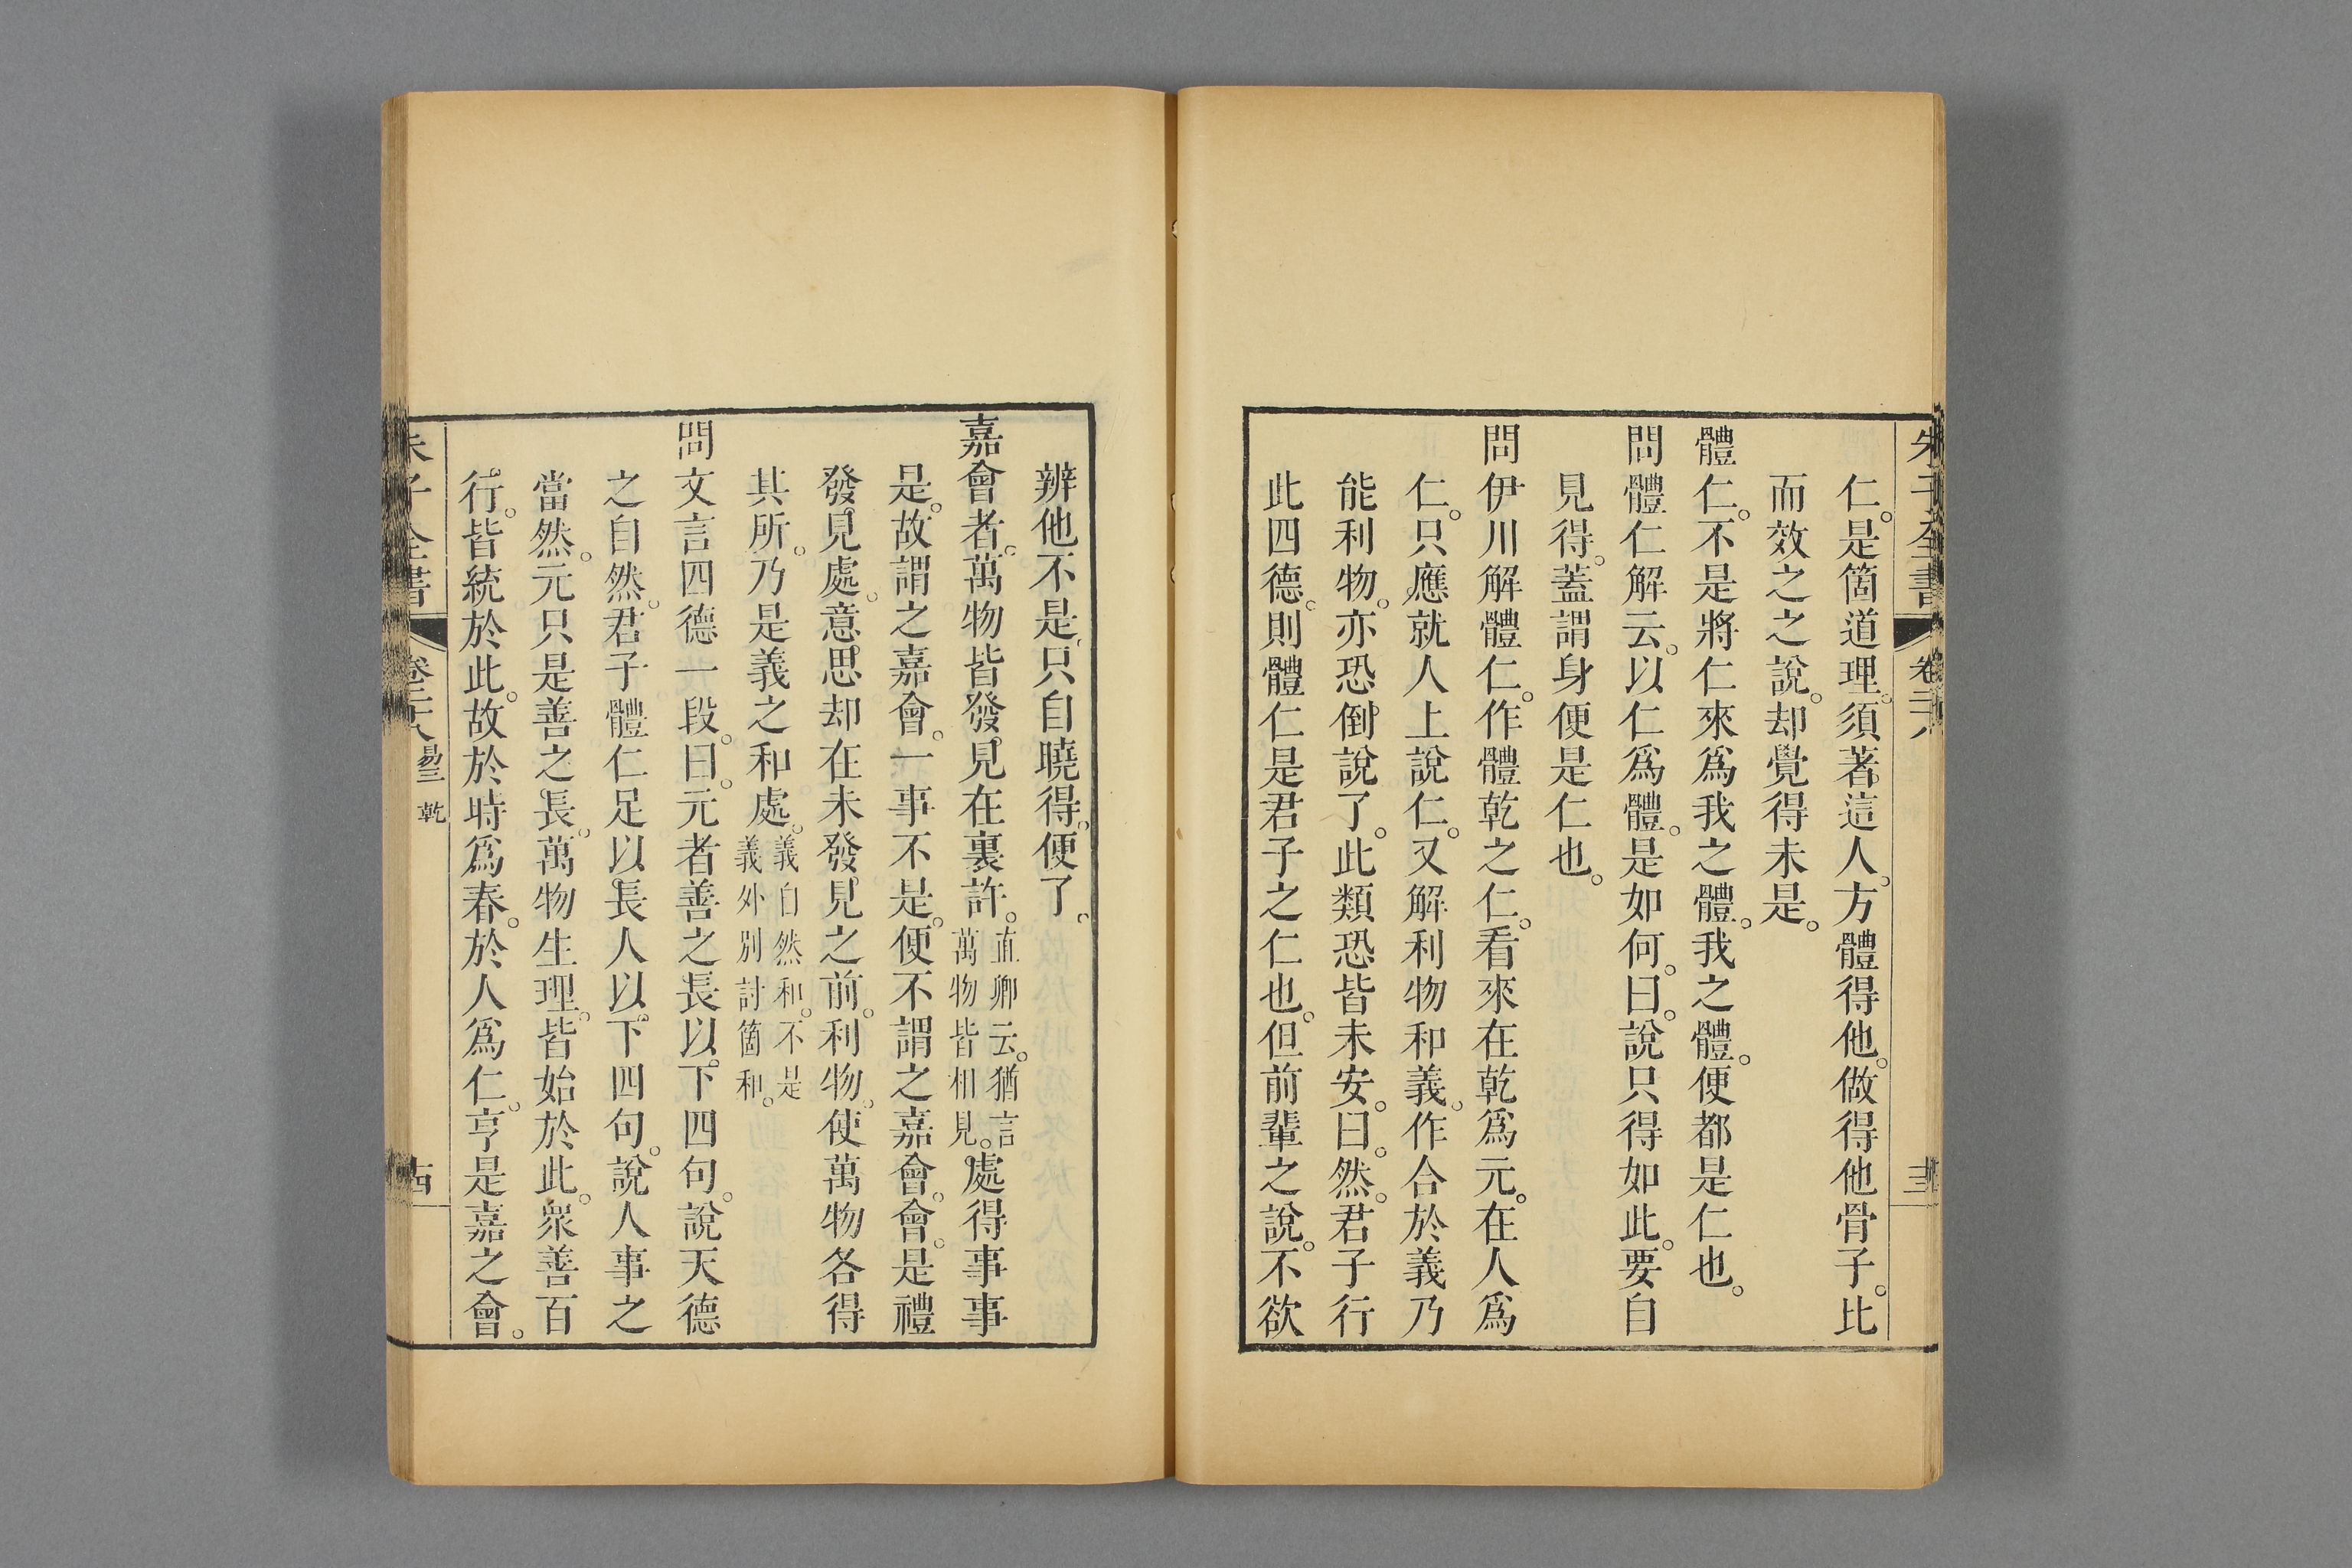 朱子全書 卷二十八
仁。是箇道理。須著這人。方體得他。做得他骨子。比
而效之之說。却覺得未是。
體仁。不是將仁來爲我之體。我之體。便都是仁也。
問體仁解云。以仁爲體。是如何。曰。說只得如此。要自
見得。蓋謂身便是仁也。
問伊川解體仁。作體乾之仁。看來在乾爲元。在人爲
仁。只應就人上說仁。又解利物和義。作合於義乃
能利物。亦恐倒說了。此類恐皆未安。曰。然。君子行
此四德。則體仁是君子之仁也。但前輩之說。不欲
辨他不是。只自曉得。便了。
嘉會者。萬物皆發見在裏許。直卿云。猶言萬物皆相見。處得事事
是。故謂之嘉會。一事不是。便不謂之嘉會。會。是禮
發見處。意思却在未發見之前。利物。使萬物各得
其所。乃是義之和處。義自然和。不是義外別討箇和。
問文言四德一段。曰。元者善之長以下四句。說天德
之自然。君子體仁足以長人以下四句。說人事之
當然。元只是善之長。萬物生理。皆始於此。衆善百
行。皆統於此。故於時爲春。於人爲仁。亨是嘉之會。
朱子全書 卷二十八 易三 乾 十四